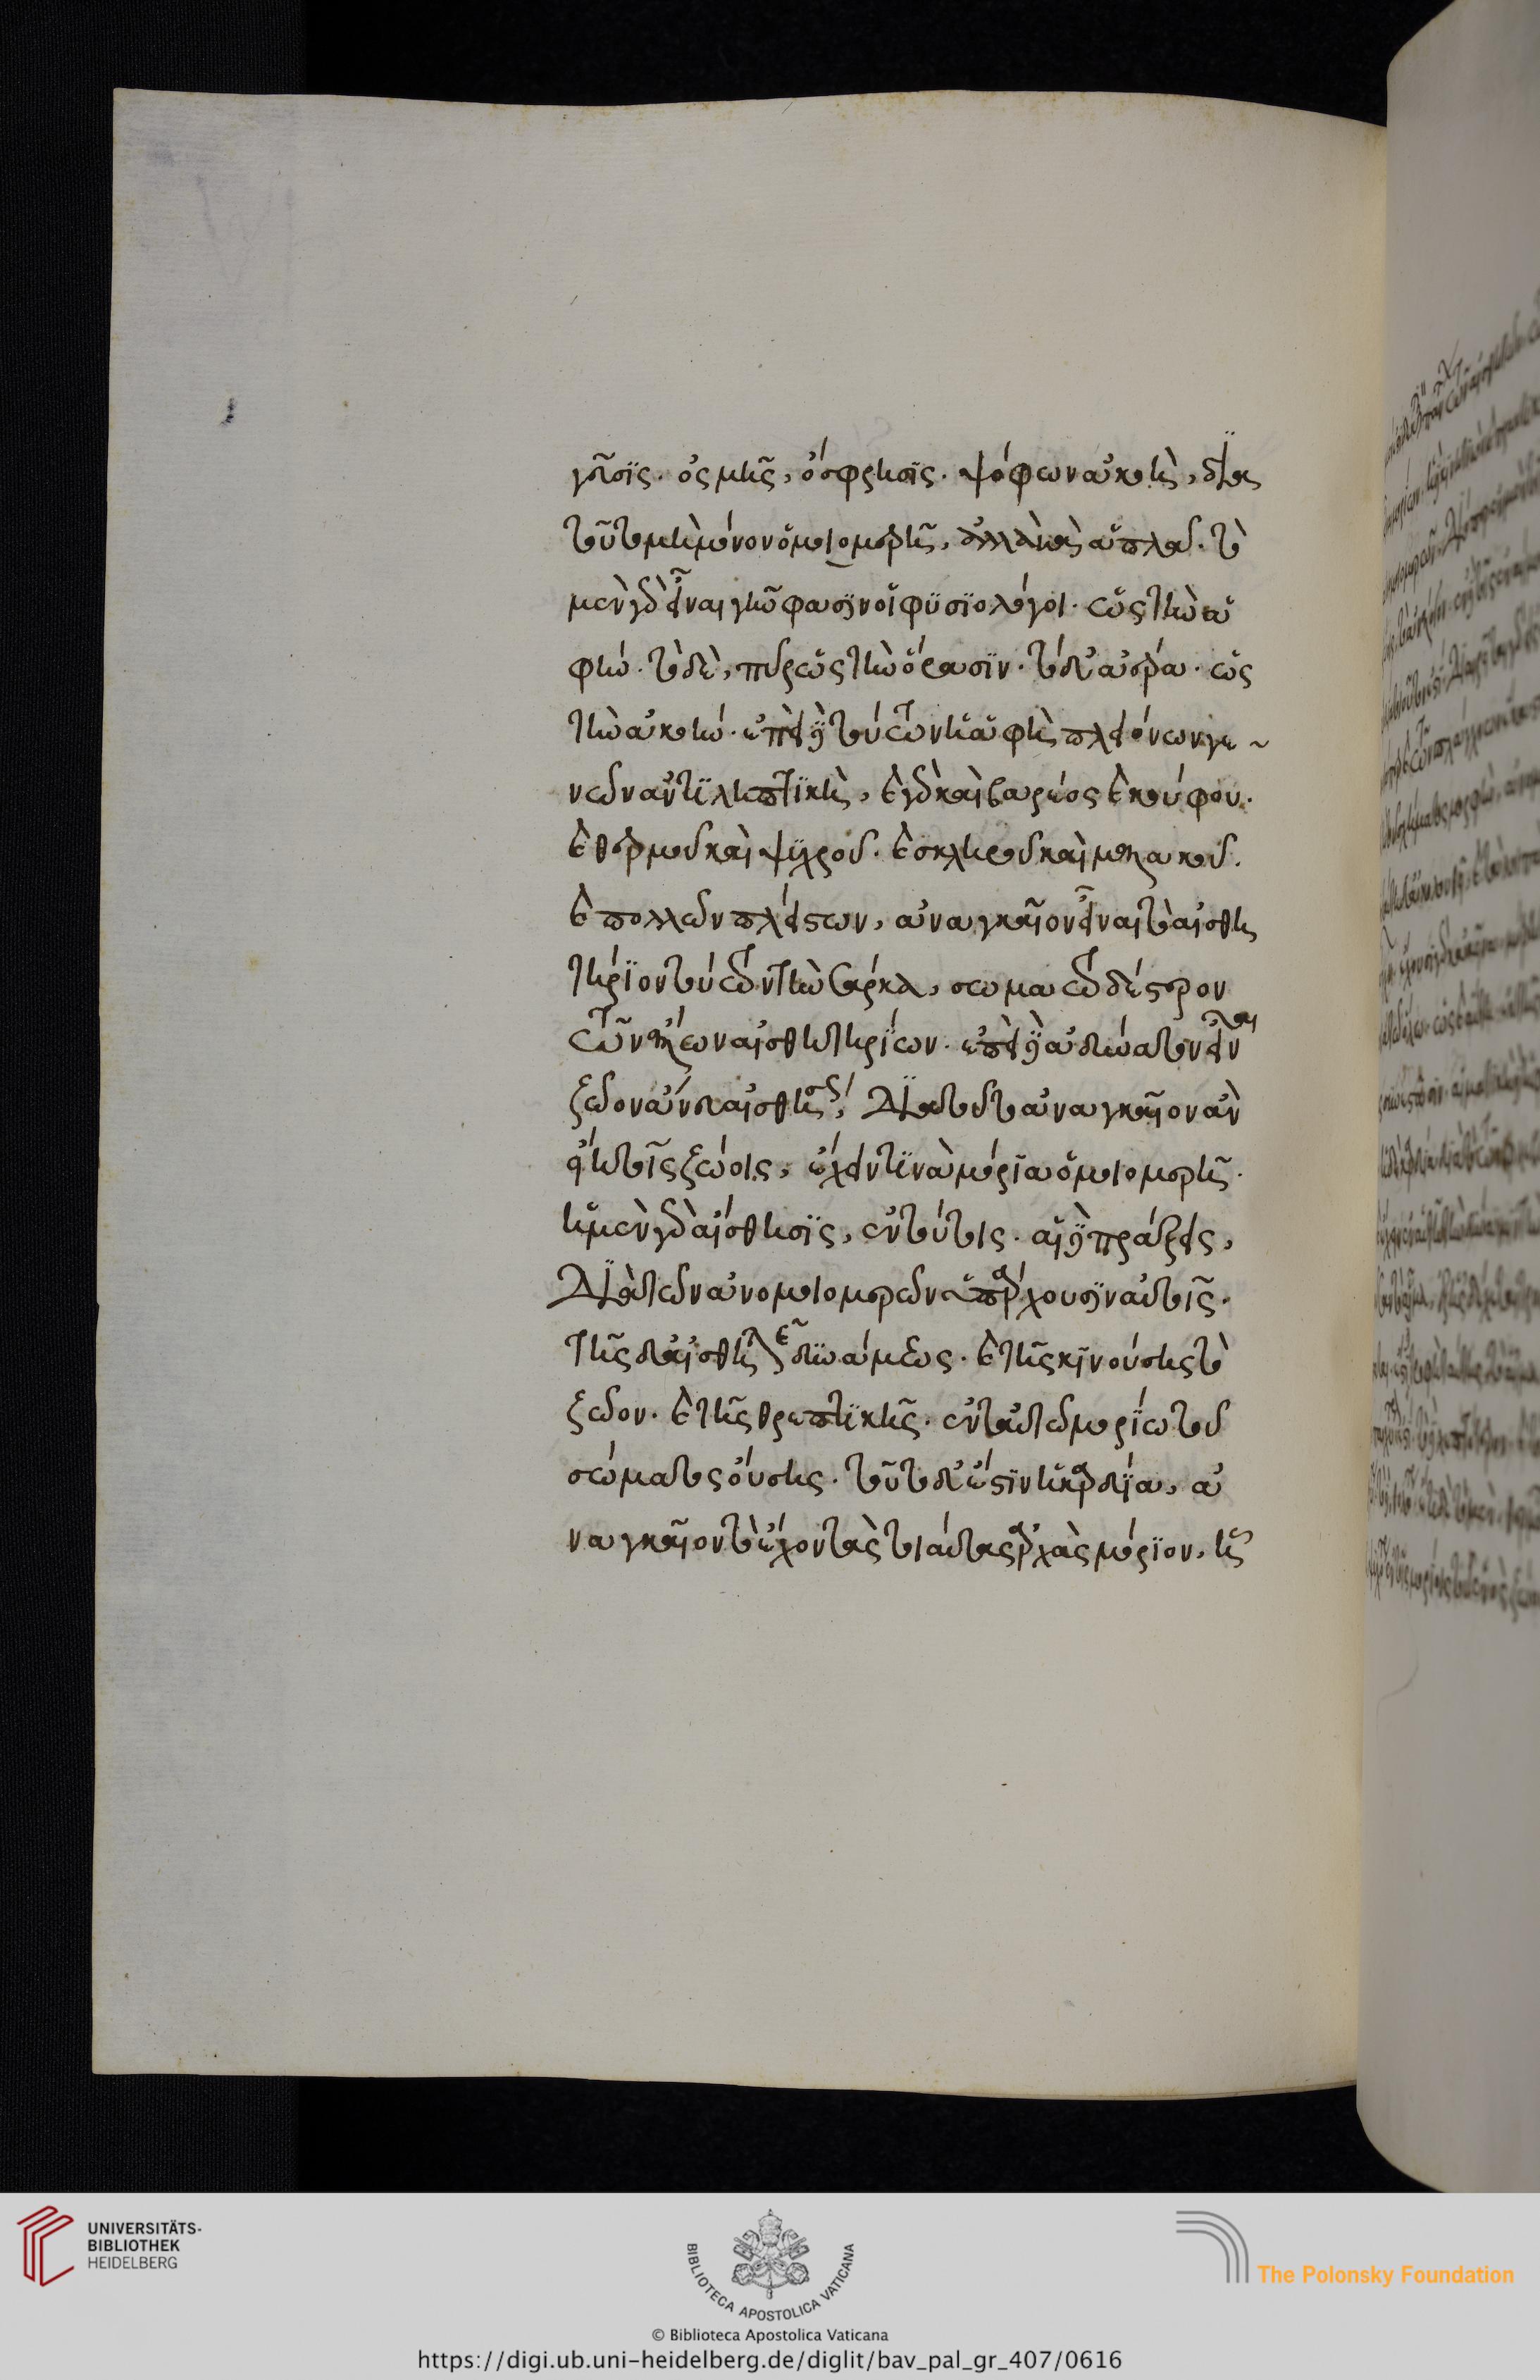 γεῦσις. ὀσμῆς, ὄσφρησις. ψόφων ἀκοὴ, διὰ
τοῦτο μὴ μόνον ὁμοιομερῆ, ἀλλὰ καὶ ἁπλᾶ. τὸ
μὲν γὰρ εἶναι γῆν φασὶν οἱ φυσιολόγοι. ὡς τὴν ἁ
φήν. τὸ δὲ, πῦρ ὡς τὴν ὅρασιν. τὸ δ' ἀέρα. ὡς
τὴν ἀκοήν. ἐπεὶ δὲ τούτων ἡ ἁφὴ πλειόνων γε
νῶν ἀντιληπτικὴ, καὶ γὰρ καὶ βαρέος καὶ κούφου.
καὶ θερμοῦ καὶ ψυχροῦ. καὶ σκληροῦ καὶ μαλακοῦ.
καὶ πολλῶν πλείστων, ἀναγκαῖον εἶναι τὸ αἰσθη
τήριον τούτων τὴν σάρκα, σωματωδέστερον
τῶν ἄλλων αἰσθητηρίων. ἐπεὶ δὲ ἀδύνατον εἶναι
ζῶον ἄνευ αἰσθήσεως, διὰ τοῦτο ἀναγκαῖον ἂν
εἴη τοῖς ζώοις, ἔχειν τινὰ μόρια ὁμοιομερῆ.
ἡ μὲν γὰρ αἴσθησις, ἐν τούτοις. αἱ δὲ πράξεις,
διὰ τῶν ἀνομοιομερῶν ὑπάρχουσιν αὐτοῖς.
τῆς δὲ αἰσθητικῆς δυνάμεως. καὶ τῆς κινούσης τὸ
ζῶον. καὶ τῆς θρεπτικῆς. ἐν ταὐτῷ μορίῳ τοῦ
σώματος οὔσης. τοῦτο δ' ἐστὶν ἡ καρδία, ἀ
ναγκαῖον τὸ ἔχον τὰς τοιαύτας ἀρχὰς μόριον, ᾗ
UNIVERSITÄTS-
BIBLIOTHEK
HEIDELBERG
BIBLIOTECA APOSTOLICA VATICANA
© Biblioteca Apostolica Vaticana
The Polonsky Foundation
https://digi.ub.uni-heidelberg.de/diglit/bav_pal_gr_407/0616